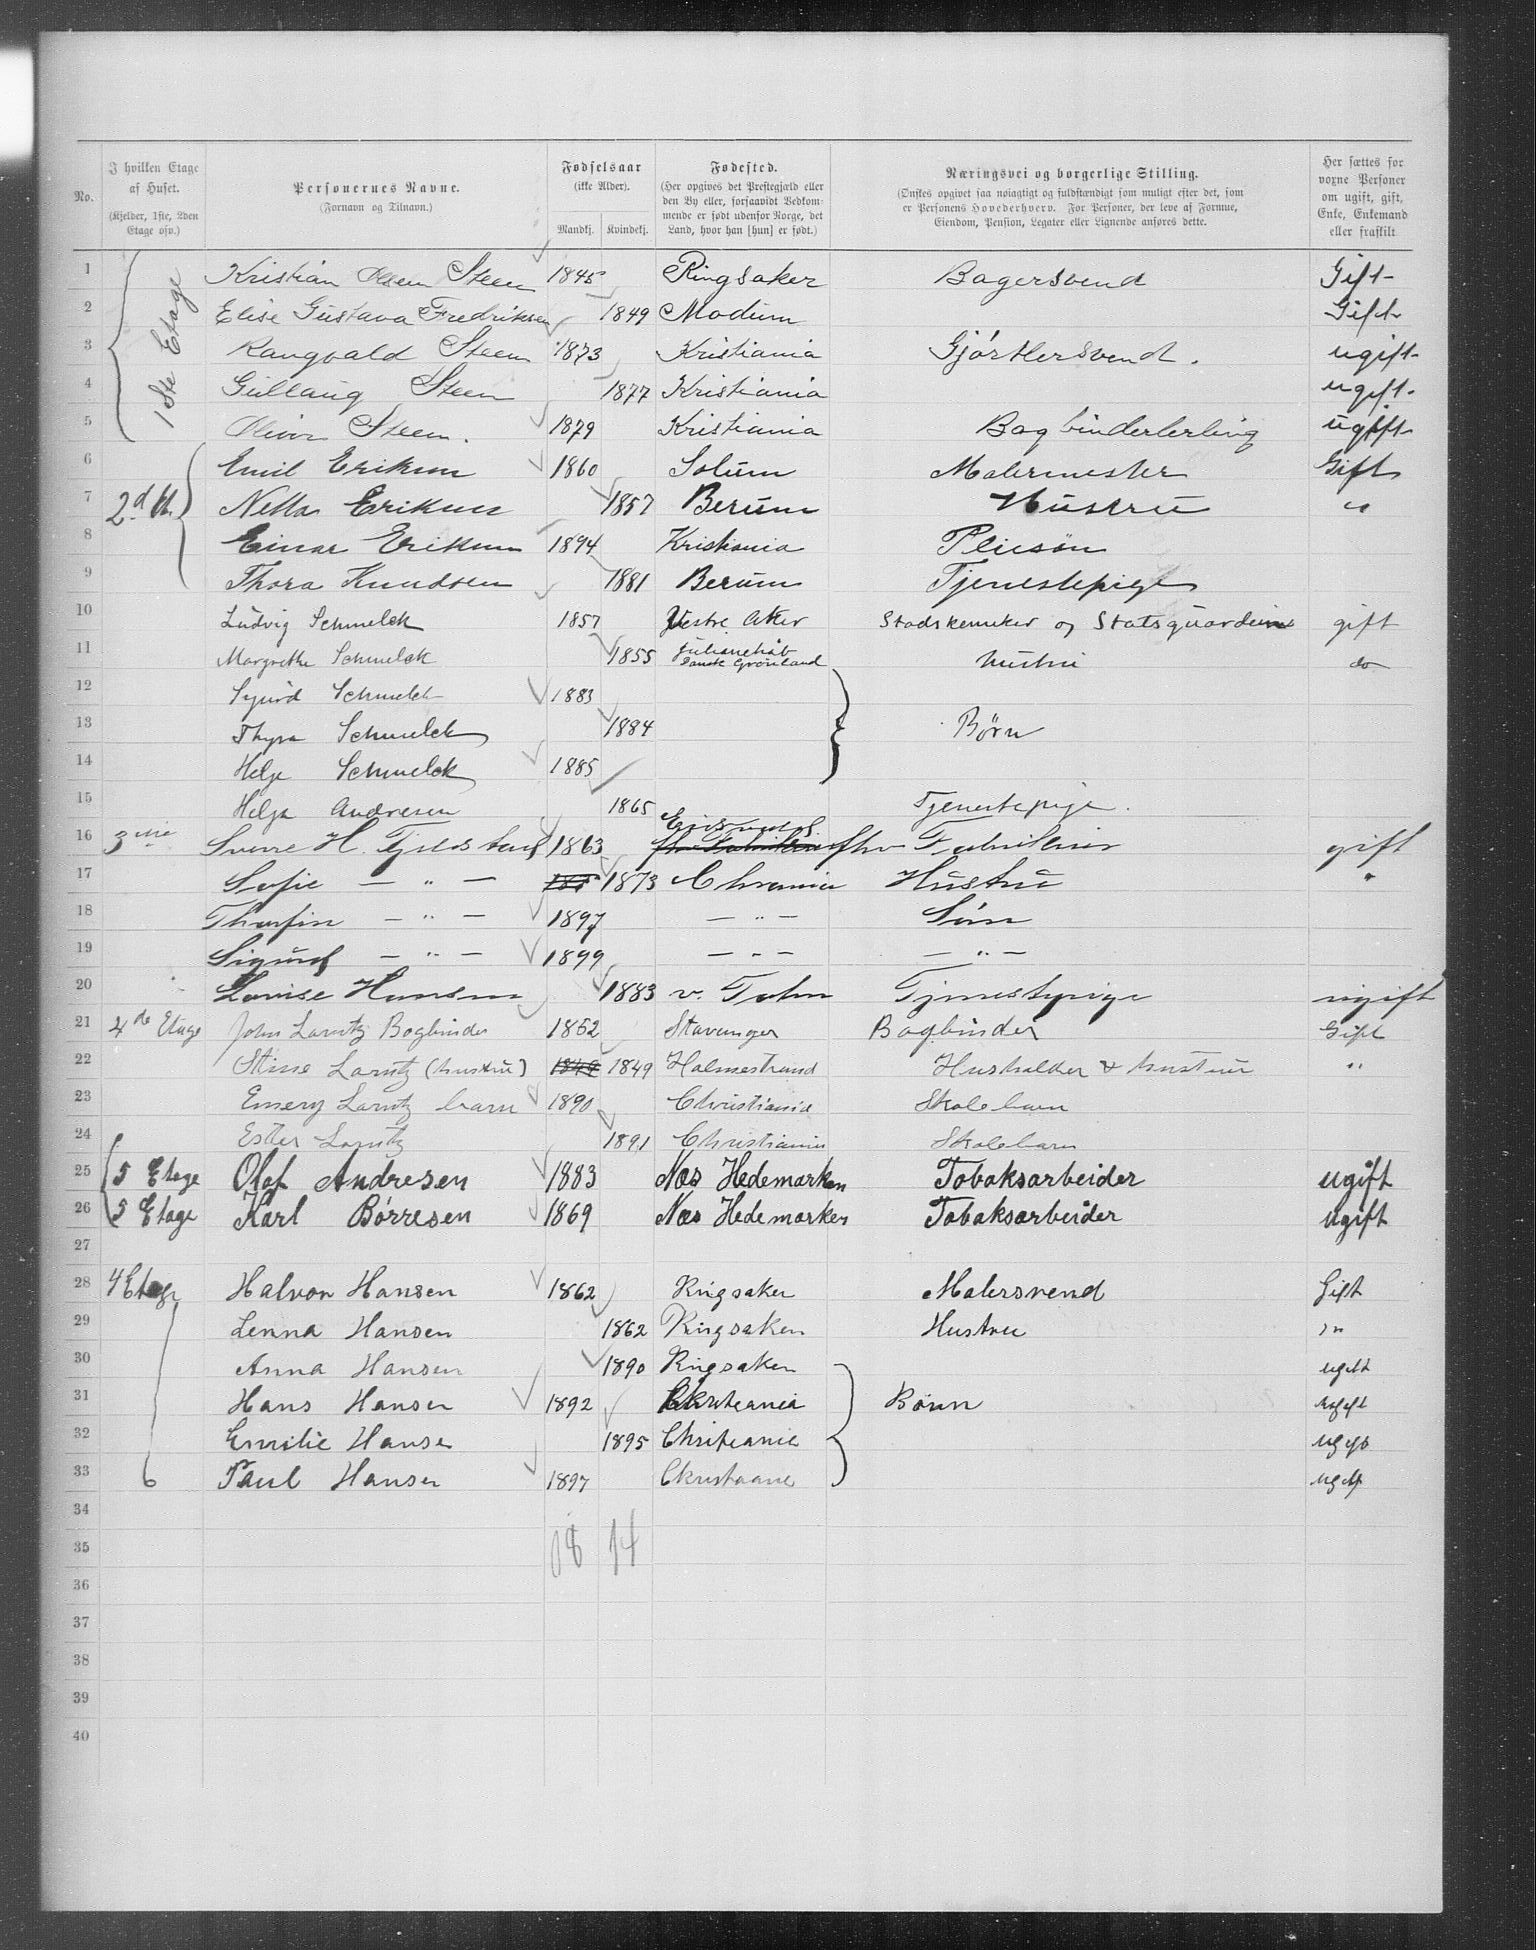 No.
I hvilken Etage af Huset.
(Kjelder, 1ste, 2den Etage osv.)
Personernes Navne.
(Fornavn og Tilnavn.)
Fødselsaar
(ikke Alder).
Mandkj. Kvindekj.
Fødested.
(Her opgives det Prestegjæld eller den By eller, forsaavidt Vedkommende er født udenfor Norge, det Land, hvor han [hun] er født.)
Næringsvei og borgerlige Stilling.
(Ønskes opgivet saa nøiagtigt og fuldstændigt som muligt efter det, som er Personens Hovederhverv. For Personer, der leve af Formue, Eiendom, Pension, Legater eller Lignende anføres dette.
Her sættes for voxne Personer om ugift, gift, Enke, Enkemand eller fraskilt
1 1ste Etage Kristian Olsen Steen 1845 Ringsaker Bagersvend Gift
2 Elise Gustava Fredriksen 1849 Modum Gift
3 Rangvald Steen 1873 Kristiania Gjørtlersvend. ugift
4 Gullaug Steen 1877 Kristiania ugift.
5 Oliver Steen. 1879 Kristiania Bogbinderlerling ugift
6 Emil Eriksen 1860 Solum Malermester Gift
7 2d Et. Netta Eriksen 1857 Berum Hustru "
8 Einar Eriksen 1894 Kristiania Pleiesøn
9 Thora Knudsen 1881 Berum Tjenestepige
10 Ludvig Schmelck 1857 Vestre Aker Stadskemiker og Statsguardein gift
11 Margrethe Schmelck 1855 Julianehåb Dansk Grønland hustru do
12 Sigurd Schmelck 1883
13 Thyra Schmelck 1884 Børn
14 Helge Schmelck 1885
15 Helga Andresen 1865 Tjenestepige.
16 3die Sverre H. Fjeldstad 1863 Eidsvold Fabrikeier gift
17 Sofie — " — 1873 Chrania Hustru "
18 Thorfin — " — 1897 — " — Søn
19 Sigurd — " — 1899 — " — — " —
20 Louise Hansen 1883 v. Toten Tjenestepige ugift
21 4de Etage John Lorntz Bogbinder 1852 Stavanger Bogbinder Gift
22 Stine Lorntz (hustru) 1849 1849 Holmestrand Husholder & hustru "
23 Emery Lorntz barn 1890 Christiania Skolebarn
24 Ester Lorntz 1891 Christiania Skolebarn
25 5 Etage Olaf Andresen 1883 Næs Hedemarken Tobaksarbeider ugift
26 5 Etage Karl Børresen 1869 Næs Hedemarken Tobaksarbeider ugift
27
28 4 Etage Halvor Hansen 1862 Ringsaker Malersvend Gift
29 Lenna Hansen 1862 Ringsaker Hustru "
30 Anna Hansen 1890 Ringsaker ugift
31 Hans Hansen 1892 Christeania Børn ugift
32 Emilie Hansen 1895 Christeania ugift
33 Paul Hansen 1897 Christiania ugift
34
35 18 14
36
37
38
39
40